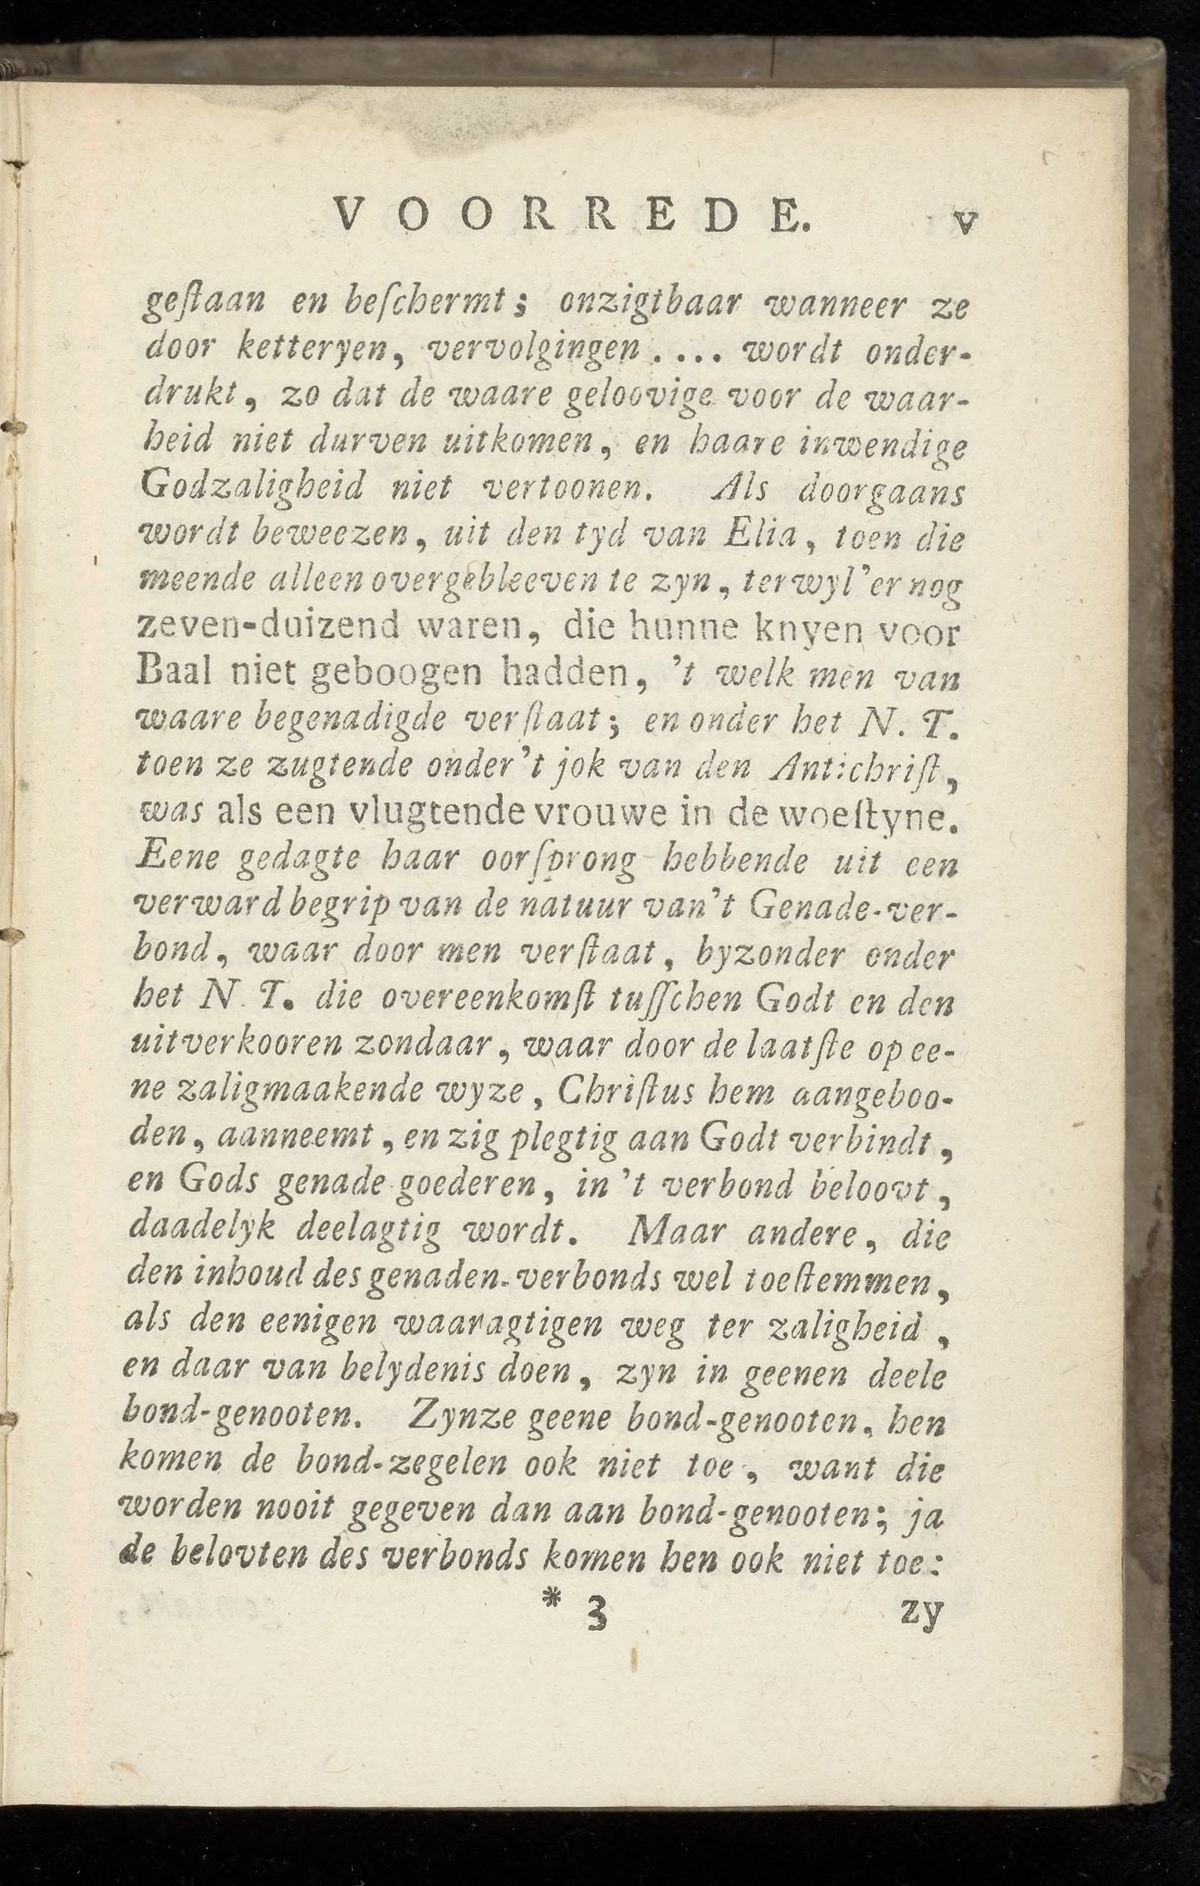 VOORREDE. v
geſtaan en beſchermt; onzigtbaar wanneer ze
door ketteryen, vervolgingen.... wordt onder-
drukt, zo dat de waare geloovige voor de waar-
heid niet durven uitkomen, en haare inwendige
Godzaligheid niet vertoonen. Als doorgaans
wordt beweezen, uit den tyd van Elia, toen die
meende alleen overgebleeven te zyn, terwyl'er nog
zeven-duizend waren, die hunne knyen voor
Baal niet geboogen hadden, 't welk men van
waare begenadigde verſtaat; en onder het N. T.
toen ze zugtende onder't jok van den Antichriſt,
was als een vlugtende vrouwe in de woeſtyne.
Eene gedagte haar oorſprong hebbende uit een
verward begrip van de natuur van't Genade-ver-
bond, waar door men verſtaat, byzonder onder
het N. T. die overeenkomſt tuſſchen Godt en den
uitverkooren zondaar, waar door de laatſte op ee-
ne zaligmaakende wyze, Chriſtus hem aangeboo-
den, aanneemt, en zig plegtig aan Godt verbindt,
en Gods genade goederen, in 't verbond beloovt,
daadelyk deelagtig wordt. Maar andere, die
den inhoud des genaden-verbonds wel toeſtemmen,
als den eenigen waaragtigen weg ter zaligheid,
en daar van belydenis doen, zyn in geenen deele
bond-genooten. Zynze geene bond-genooten, hen
komen de bond-zegelen ook niet toe, want die
worden nooit gegeven dan aan bond-genooten; ja
de belovten des verbonds komen hen ook niet toe:
* 3 zy